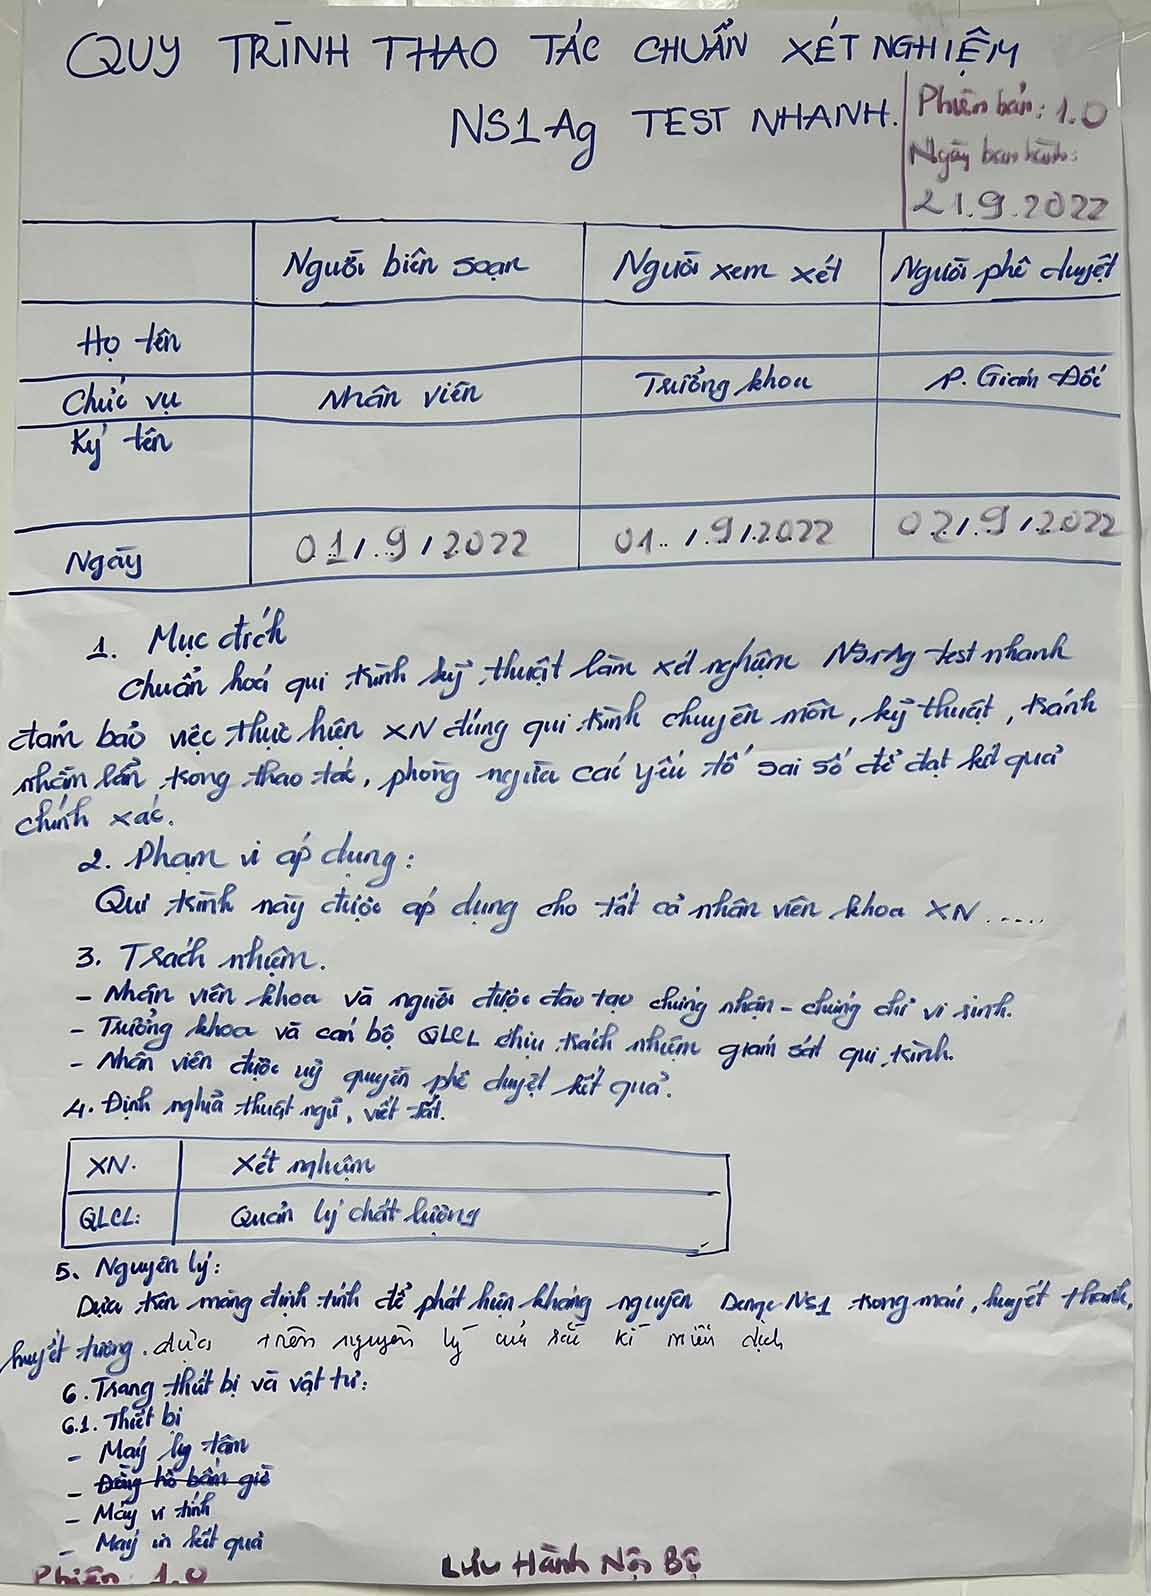 QUY TRÌNH THAO TÁC CHUẨN XÉT NGHIỆM
NS1Ag TEST NHANH.
Phiên bản: 1.0
Ngày ban hành:
21.9.2022
Người biên soạn Người xem xét Người phê duyệt
Họ tên
Chức vụ Nhân viên Trưởng khoa P. Giám Đốc
Ký tên
Ngày 01/.9/2022 01../.9/.2022 02/.9/.2022
1. Mục đích
Chuẩn hoá qui trình kỹ thuật làm xét nghiệm NS1Ag test nhanh
đảm bảo việc thực hiện XN đúng qui trình chuyên môn, kỹ thuật, tránh
nhầm lẫn trong thao tác, phòng ngừa các yếu tố sai số để đạt kết quả
chính xác.
2. Phạm vi áp dụng:
Qui trình này được áp dụng cho tất cả nhân viên khoa XN.....
3. Trách nhiệm.
- Nhân viên khoa và người được đào tạo chứng nhận - chứng chỉ vi sinh.
- Trưởng khoa và cán bộ QLCL chịu trách nhiệm giám sát qui trình.
- Nhân viên được uỷ quyền phê duyệt kết quả.
4. Định nghĩa thuật ngữ, viết tắt.
XN. Xét nghiệm
QLCL: Quản lý chất lượng
5. Nguyên lý:
Dựa trên màng định tính để phát hiện kháng nguyên Denge NS1 trong máu, huyết thanh,
huyết tương. dựa trên nguyên lý của sắc kí miễn dịch
6. Trang thiết bị và vật tư:
6.1. Thiết bị
- Máy ly tâm
- Đồng hồ bấm giờ
- Máy vi tính
- Máy in kết quả
Phiên 1.0 Lưu Hành Nội Bộ